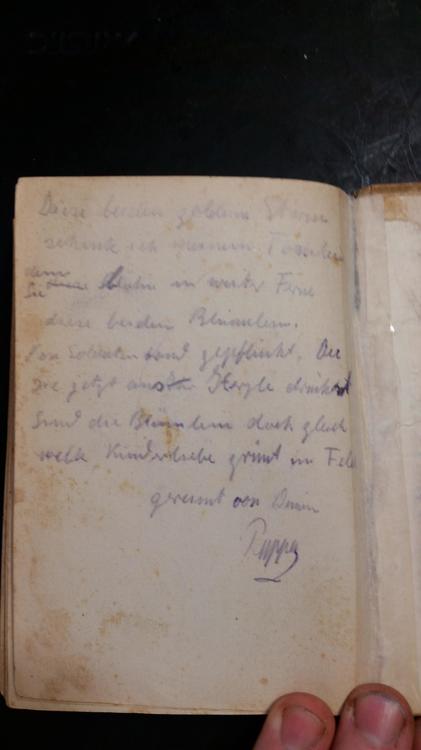 Diese beiden goldenen Sterne
schenk ich meinem
denn
Sie in weiter Ferne
diese beiden Blümlein.
Von Soldatenhand gepflückt.
sie jetzt ans Herzle drückst
Sind die Blümlein doch gleich
welk Kinderliebe grünt im Feld
gereimt von Deinem
Pappa